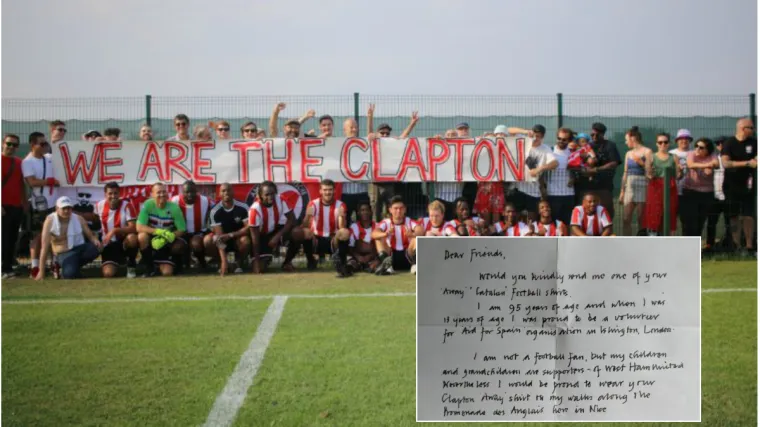 WE ARE THE CLAPTON
Dear Friends,
Would you kindly send me one of your
Away "Catalan" Football shirts.
I am 95 years of age and when I was
18 years of age I was proud to be a volunteer
for Aid for Spain organisation in Islington, London.
I am not a football fan, but my children
and grandchildren are supporters - of West Ham United
Nevertheless I would be proud to wear your
Clapton Away shirt on my walks along the
Promenade des Anglais here in Nice